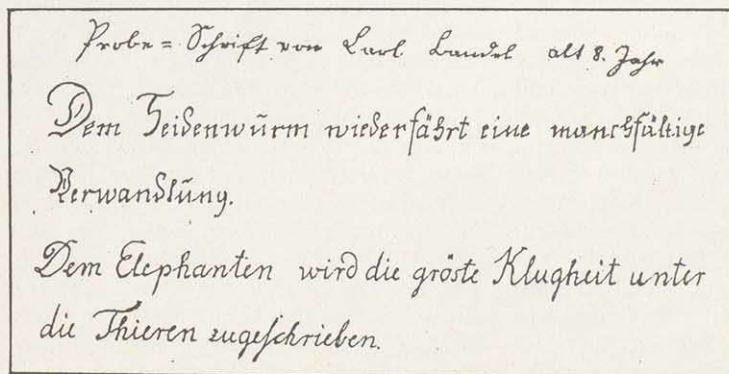 Probe = Schrift von Carl Bandel alt 8. Jahr
Dem Seidenwŭrm wiederfährt eine manchfältige
Verwandlŭng.
Dem Elephanten wird die gröste Klugheit unter
die Thieren zugeschrieben.